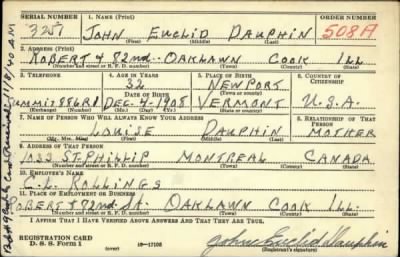 SERIAL NUMBER
1. NAME (Print)
ORDER NUMBER
3257
JOHN EUCLID DAUPHIN
508A
(First) (Middle) (Last)
2. ADDRESS (Print)
ROBERT & 82nd OAKLAWN COOK ILL
(Number and street or R. F. D. number) (Town) (County) (State)
3. TELEPHONE
4. AGE IN YEARS
5. PLACE OF BIRTH
6. COUNTRY OF CITIZENSHIP
32
NEWPORT
DATE OF BIRTH
(Town or county)
SUMMIT 886R1
DEC. 4-1908
VERMONT
U.S.A.
(Exchange) (Number)
(Mo.) (Day) (Yr.)
(State or country)
7. NAME OF PERSON WHO WILL ALWAYS KNOW YOUR ADDRESS
8. RELATIONSHIP OF THAT PERSON
LOUISE DAUPHIN
MOTHER
(Mr., Mrs., Miss) (First) (Middle) (Last)
9. ADDRESS OF THAT PERSON
1033 ST. PHILLIP MONTREAL CANADA
(Number and street or R. F. D. number) (Town) (County) (State)
10. EMPLOYER'S NAME
C. L. ROLLINGS
11. PLACE OF EMPLOYMENT OR BUSINESS
ROBERT & 82nd St. OAKLAWN COOK ILL.
(Number and street or R. F. D. number) (Town) (County) (State)
I AFFIRM THAT I HAVE VERIFIED ABOVE ANSWERS AND THAT THEY ARE TRUE.
REGISTRATION CARD
D. S. S. Form 1
(over)
16-17105
John Euclid Dauphin
(Registrant's signature)